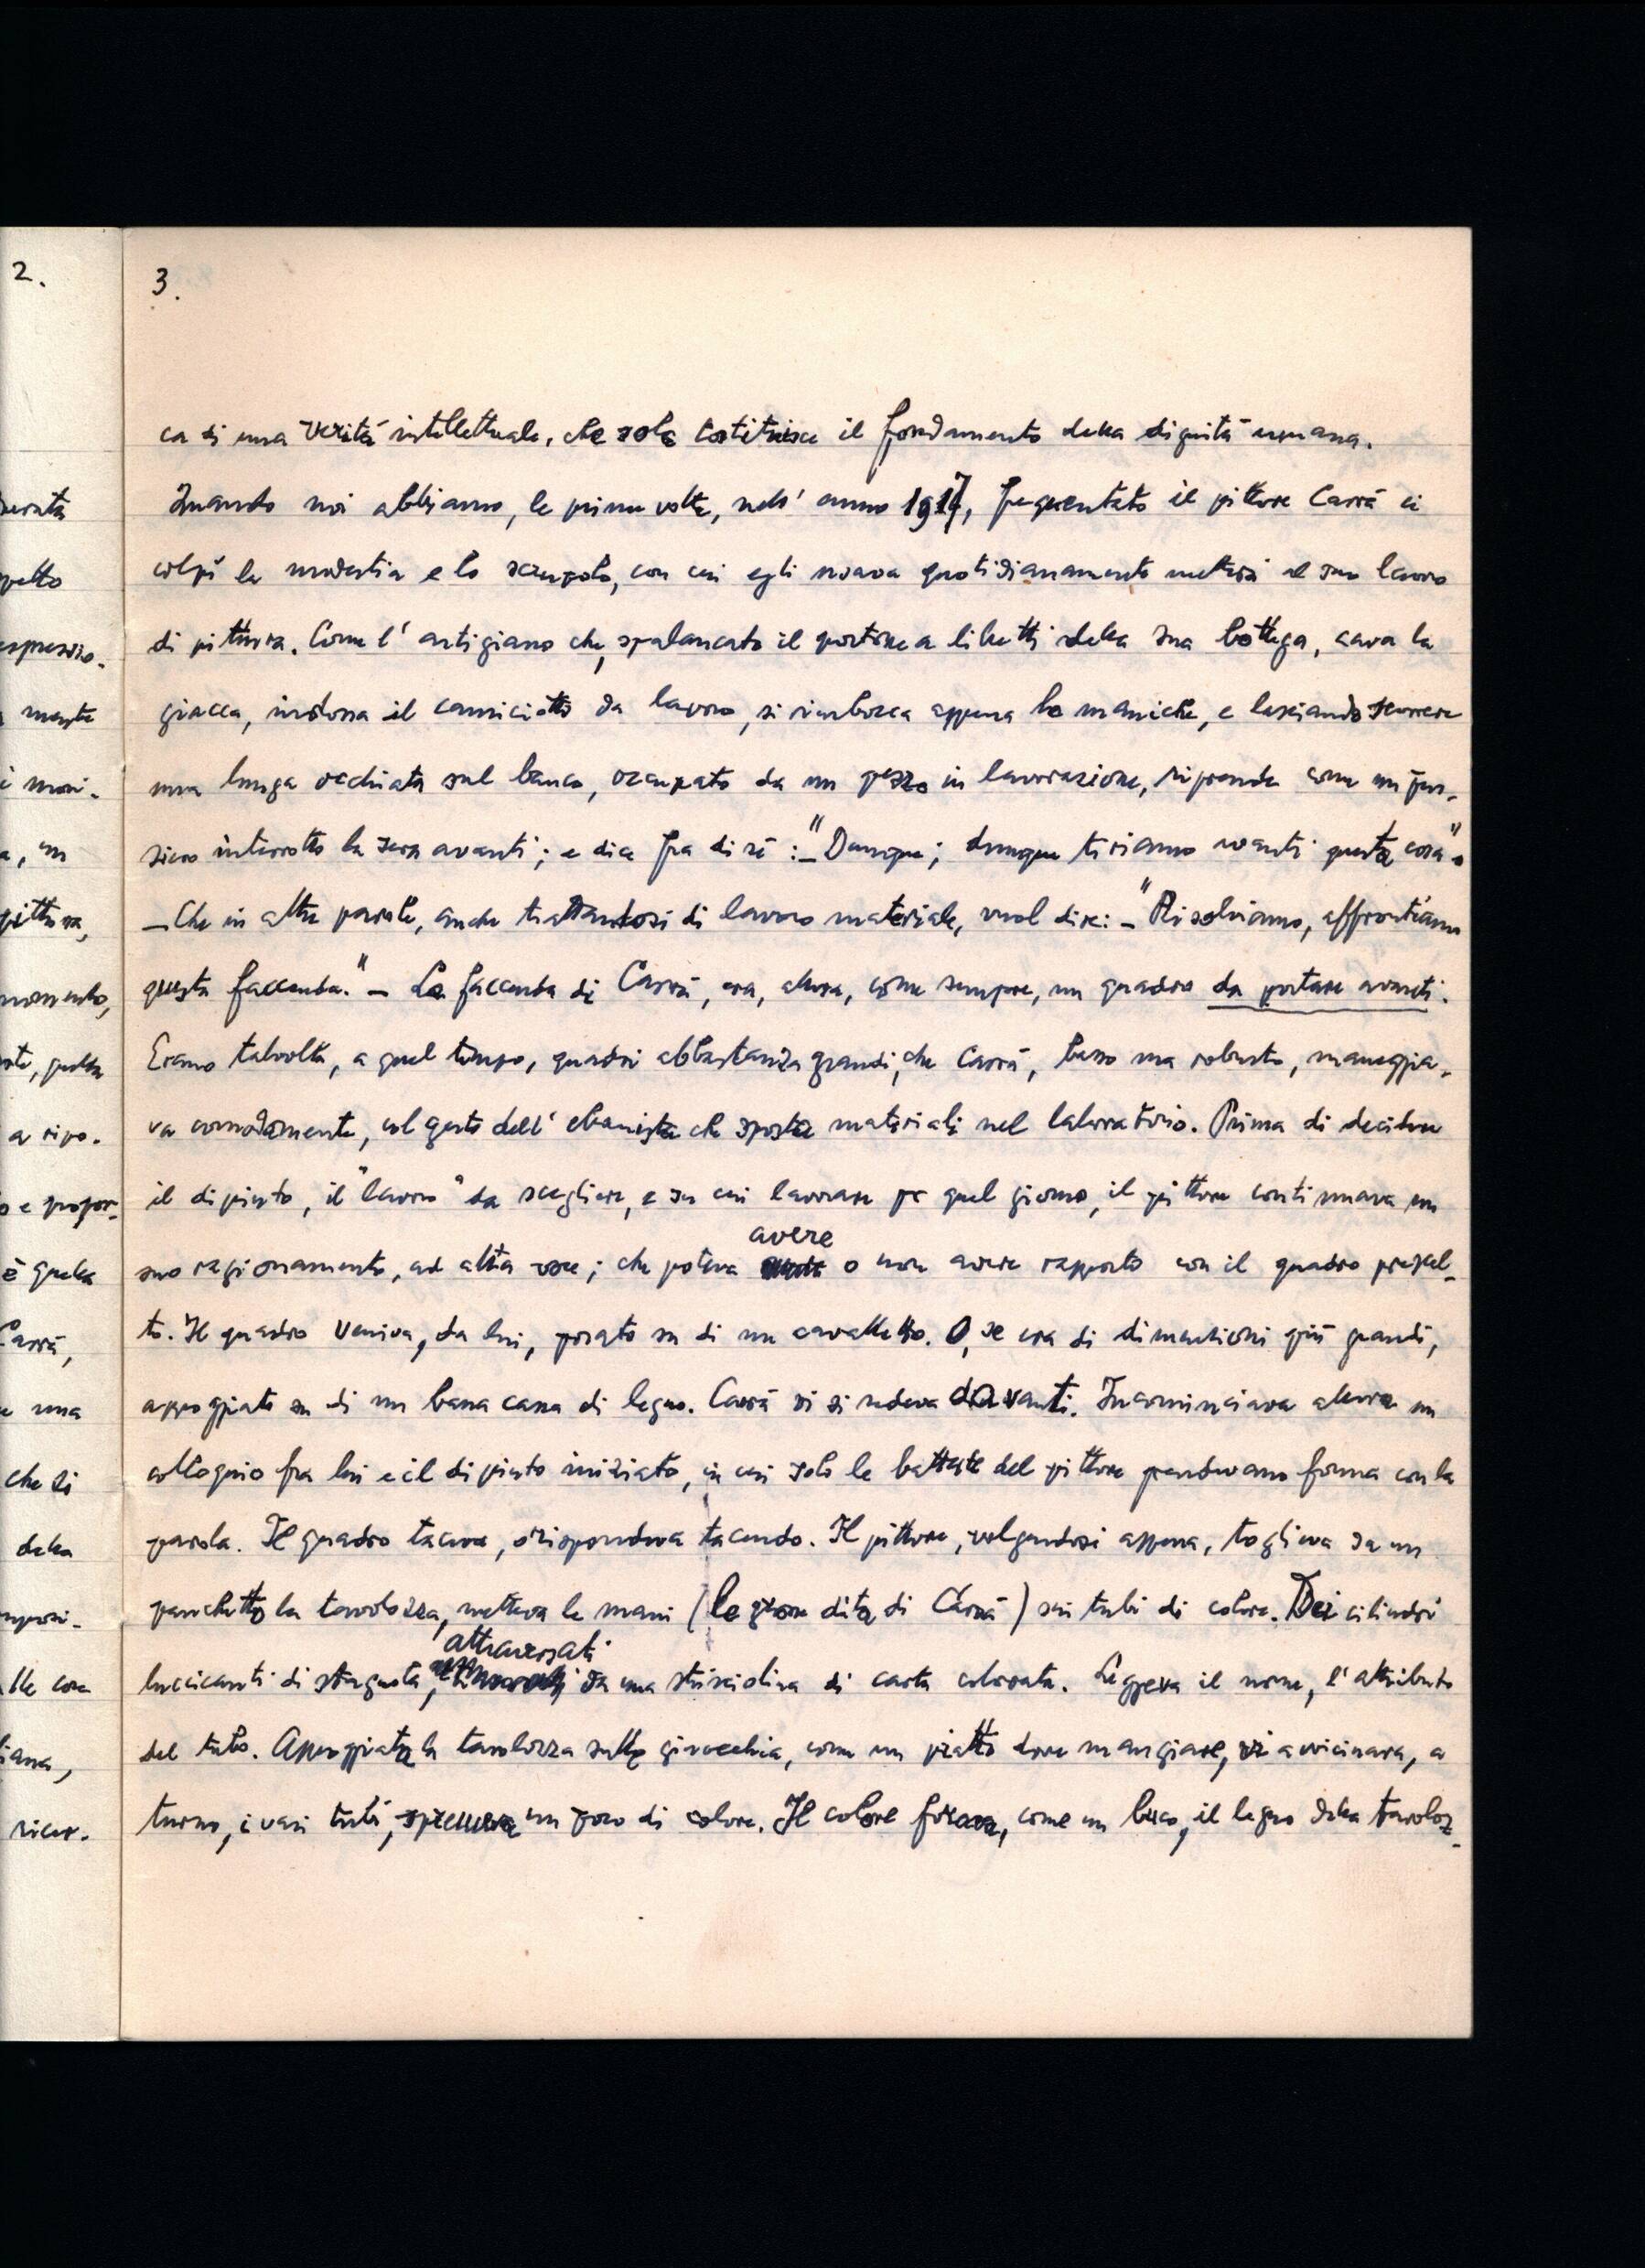 2.
3.
ca di una verità intellettuale, che sola costituisce il fondamento della dignità umana.
Quando noi abbiamo, la prima volta, nell'anno 1917, frequentato il pittore Carrà ci
colpì la modestia e lo scrupolo, con cui egli usava quotidianamente mettersi al suo lavoro
di pittura. Come l'artigiano che, spalancato il portone a libretti della sua bottega, cava la
giacca, indossa il camiciotto da lavoro, si rimbocca appena le maniche, e lasciando scorrere
una lunga occhiata sul banco, occupato da un pezzo in lavorazione, riprende come un pen-
siero interrotto la sera avanti; e dice fra di sé: - "Dunque; dunque tiriamo avanti questa cosa".
- Che in altre parole, anche trattandosi di lavoro materiale, vuol dire: - "Risolviamo, affrontiamo
questa faccenda." - La faccenda di Carrà, era, allora, come sempre, un quadro da portare avanti.
Erano talvolta, a quel tempo, quadri abbastanza grandi, che Carrà, basso ma robusto, maneggia-
va comodamente, col gesto dell'ebanista che sposta materiali nel laboratorio. Prima di decidere
il dipinto, il "lavoro" da scegliere, e su cui lavorare per quel giorno, il pittore continuava un
avere
suo ragionamento, ad alta voce; che poteva o non avere rapporto con il quadro prescel-
to. Il quadro veniva, da lui, posato su di un cavalletto. O, se era di dimensioni più grandi,
appoggiato su di una bassa cassa di legno. Carrà vi si sedeva davanti. Incominciava allora un
colloquio fra lui e il dipinto iniziato, in cui solo le battute del pittore prendevano forma con la
parola. Il quadro taceva, o rispondeva tacendo. Il pittore, volgendosi appena, toglieva da un
panchetto la tavolozza, metteva le mani (le grosse dita di Carrà) sui tubi di colore. Dei cilindri
attraversati
luccicanti di stagnola, da una strisciolina di carta colorata. Leggeva il nome, l'attributo
del tubo. Appoggiata la tavolozza sulle ginocchia, come un piatto dove mangiare, vi avvicinava, a
turno, i vari tubi, spremeva un poco di colore. Il colore forava, come un buco, il legno della tavoloz-